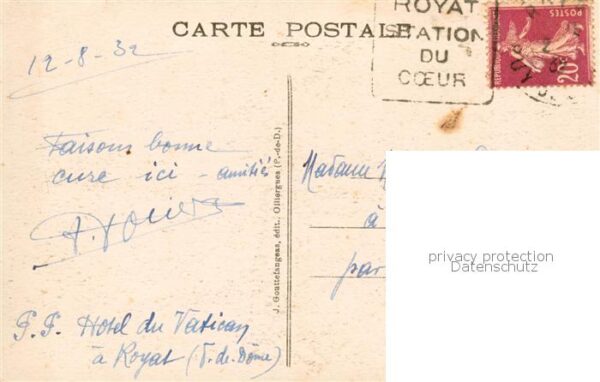 CARTE POSTALE
ROYAT
STATION
DU
CŒUR
POSTES
20
12-8-32
Faisons bonne
cure ici - amitiés
P.P. Hotel du Vatican
à Royat (P.-de-Dôme)
J. Gouttefangeas, édit., Olliergues (P.-de-D.)
Madame
à
par
privacy protection
Datenschutz